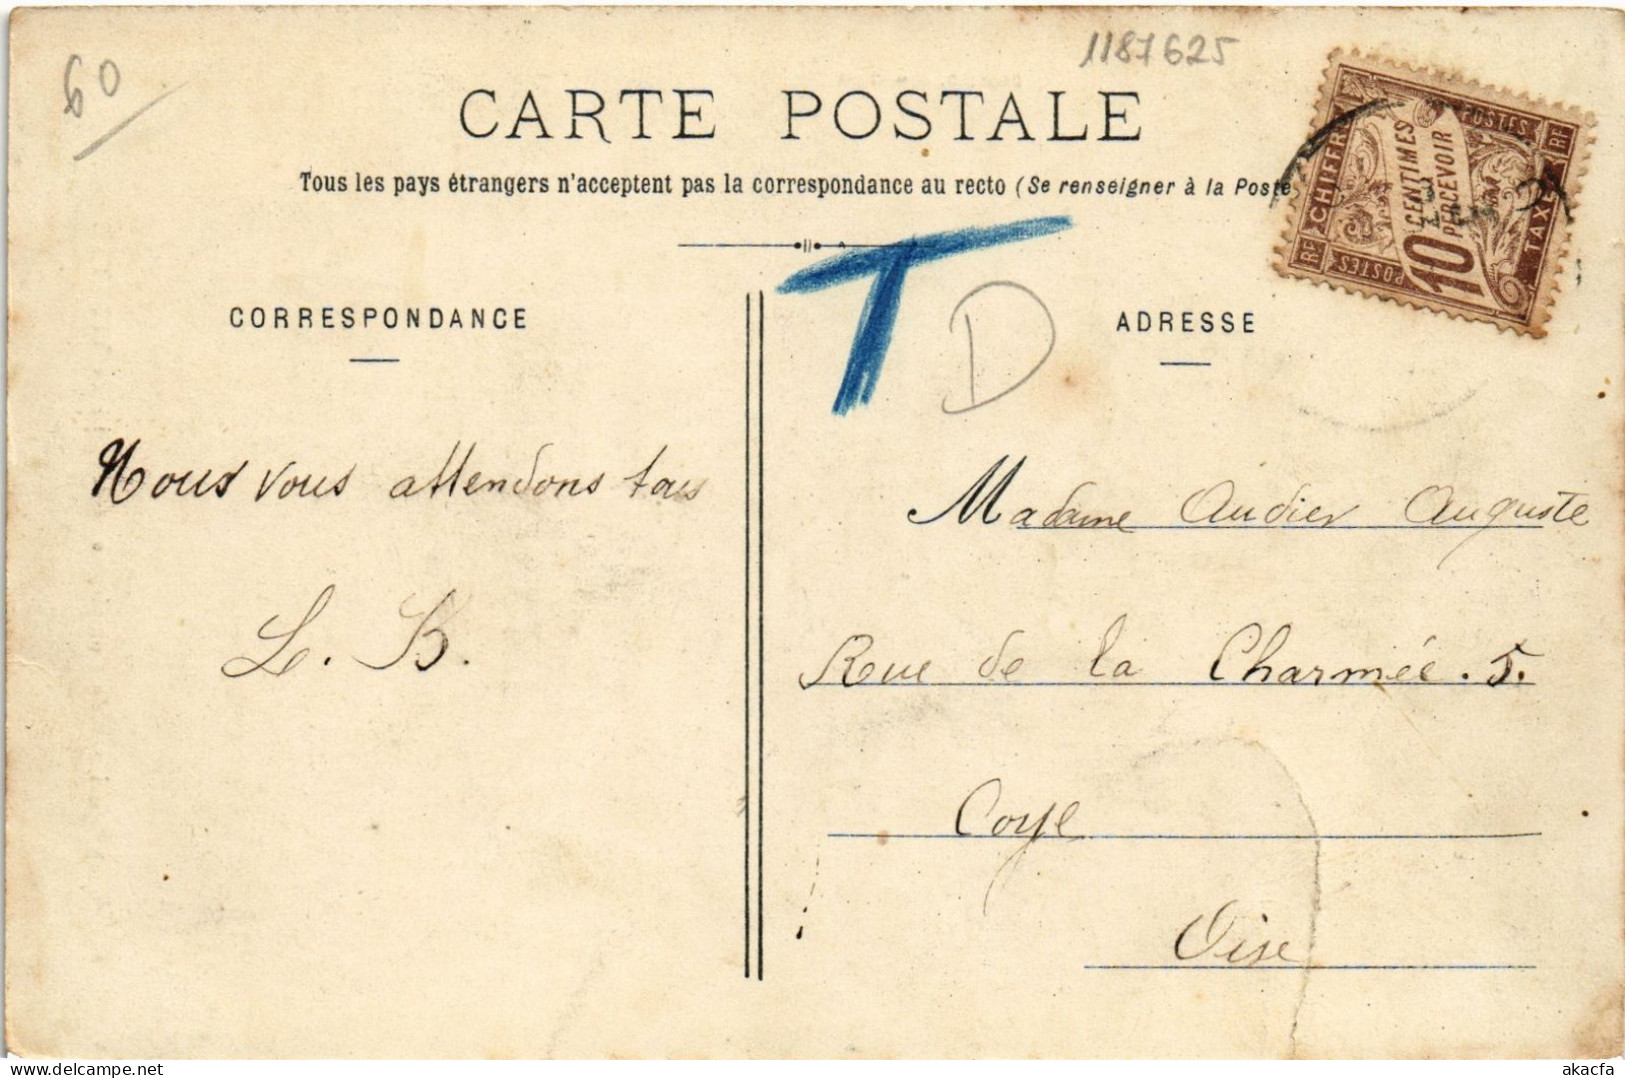 60
1187625
CARTE POSTALE
Tous les pays étrangers n'acceptent pas la correspondance au recto (Se renseigner à la Poste)
RF CHIFFRE TAXE RF
POSTES
10 CENTIMES
PERCEVOIR
POSTES
T
D
CORRESPONDANCE
ADRESSE
Nous vous attendons tous
L. B.
Madame Audier Auguste
Rue de la Charmée. 5.
Coye
Oise
delcampe.net
akacfa